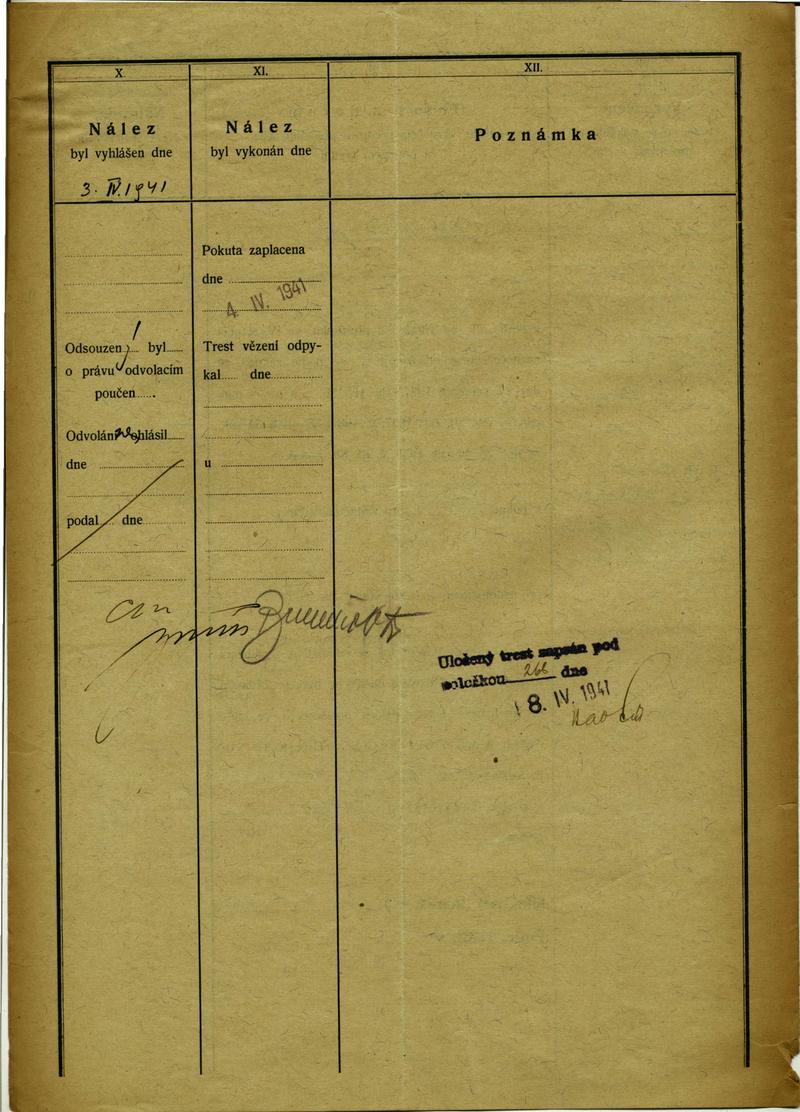 X.
Nález
byl vyhlášen dne
3. IV. 1941
Odsouzen byl
o právu odvolacím
poučen
Odvolání neohlásil
dne
podal dne
XI.
Nález
byl vykonán dne
Pokuta zaplacena
dne
4. IV. 1941
Trest vězení odpy-
kal dne
u
XII.
Poznámka
Uložený trest zapsán pod
položkou 266 dne
8. IV. 1941